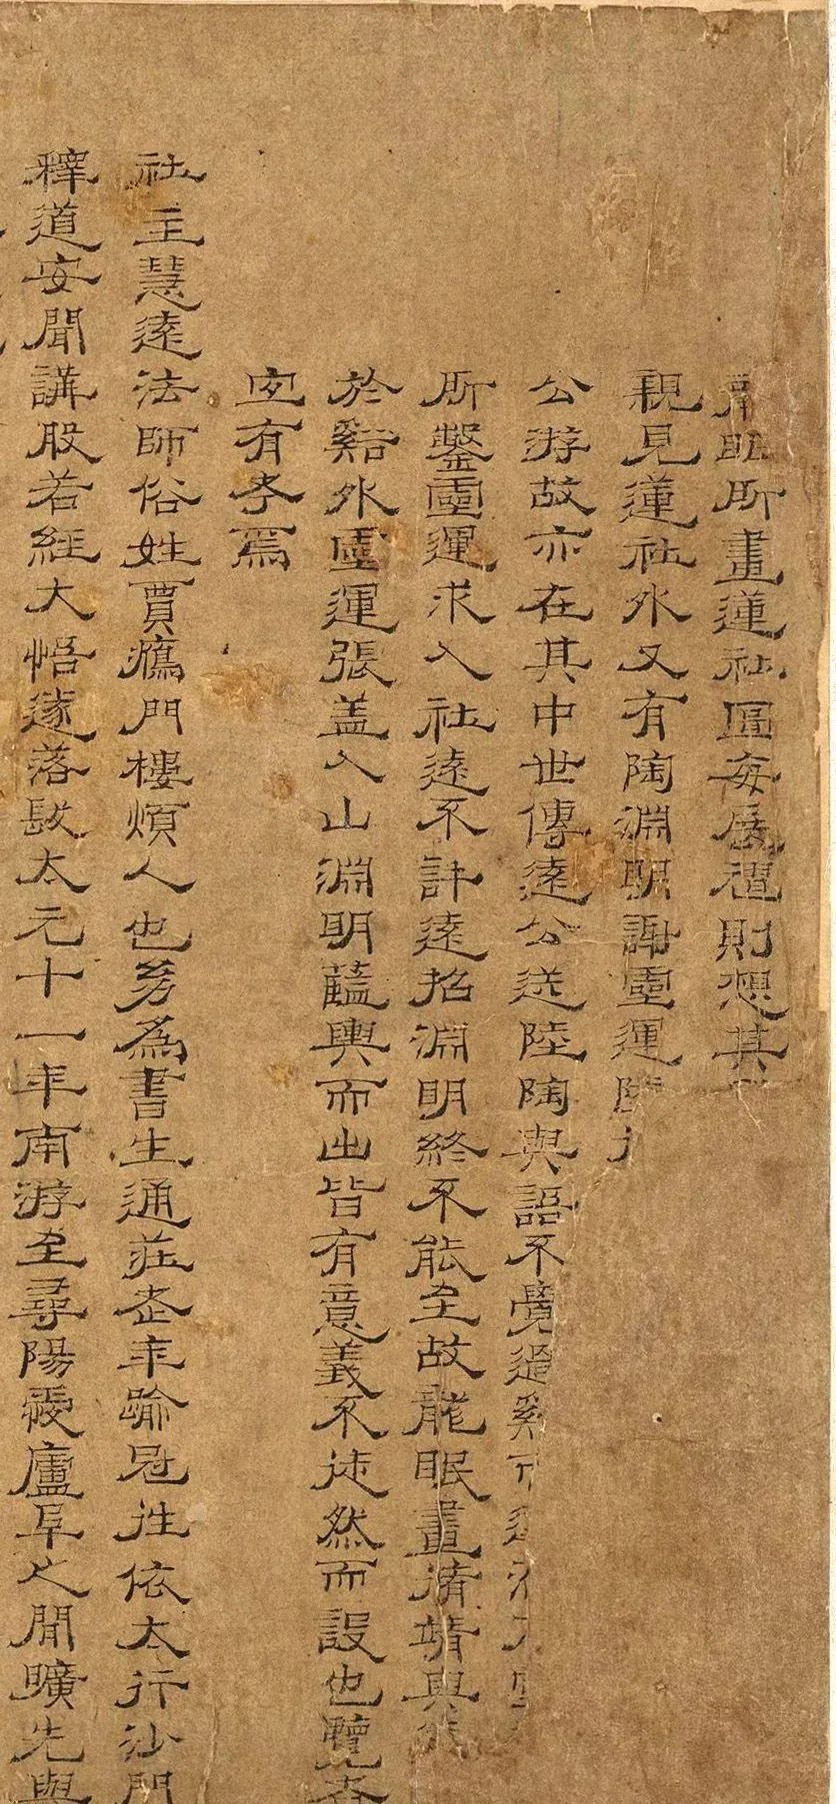 眠所畫蓮社圖每展𥚃則想其
親見蓮社外又有陶淵明謝靈運陸
公游故亦在其中世傳遠公送陸陶與語不覺過谿
所鑿靈運求入社遠不許遠招淵明終不能至故龍眠畫脩靖與
於谿外靈運張盖入山淵明藍輿而出皆有意義不徒然而設也覽者
宜有考焉
社主慧遠法師俗姓賈鴈門樓煩人也幼為書生通莊老年踰冠往依太行沙門
釋道安聞講般若經大悟遂落髮太元十一年南游至尋陽愛廬阜之閒曠先與